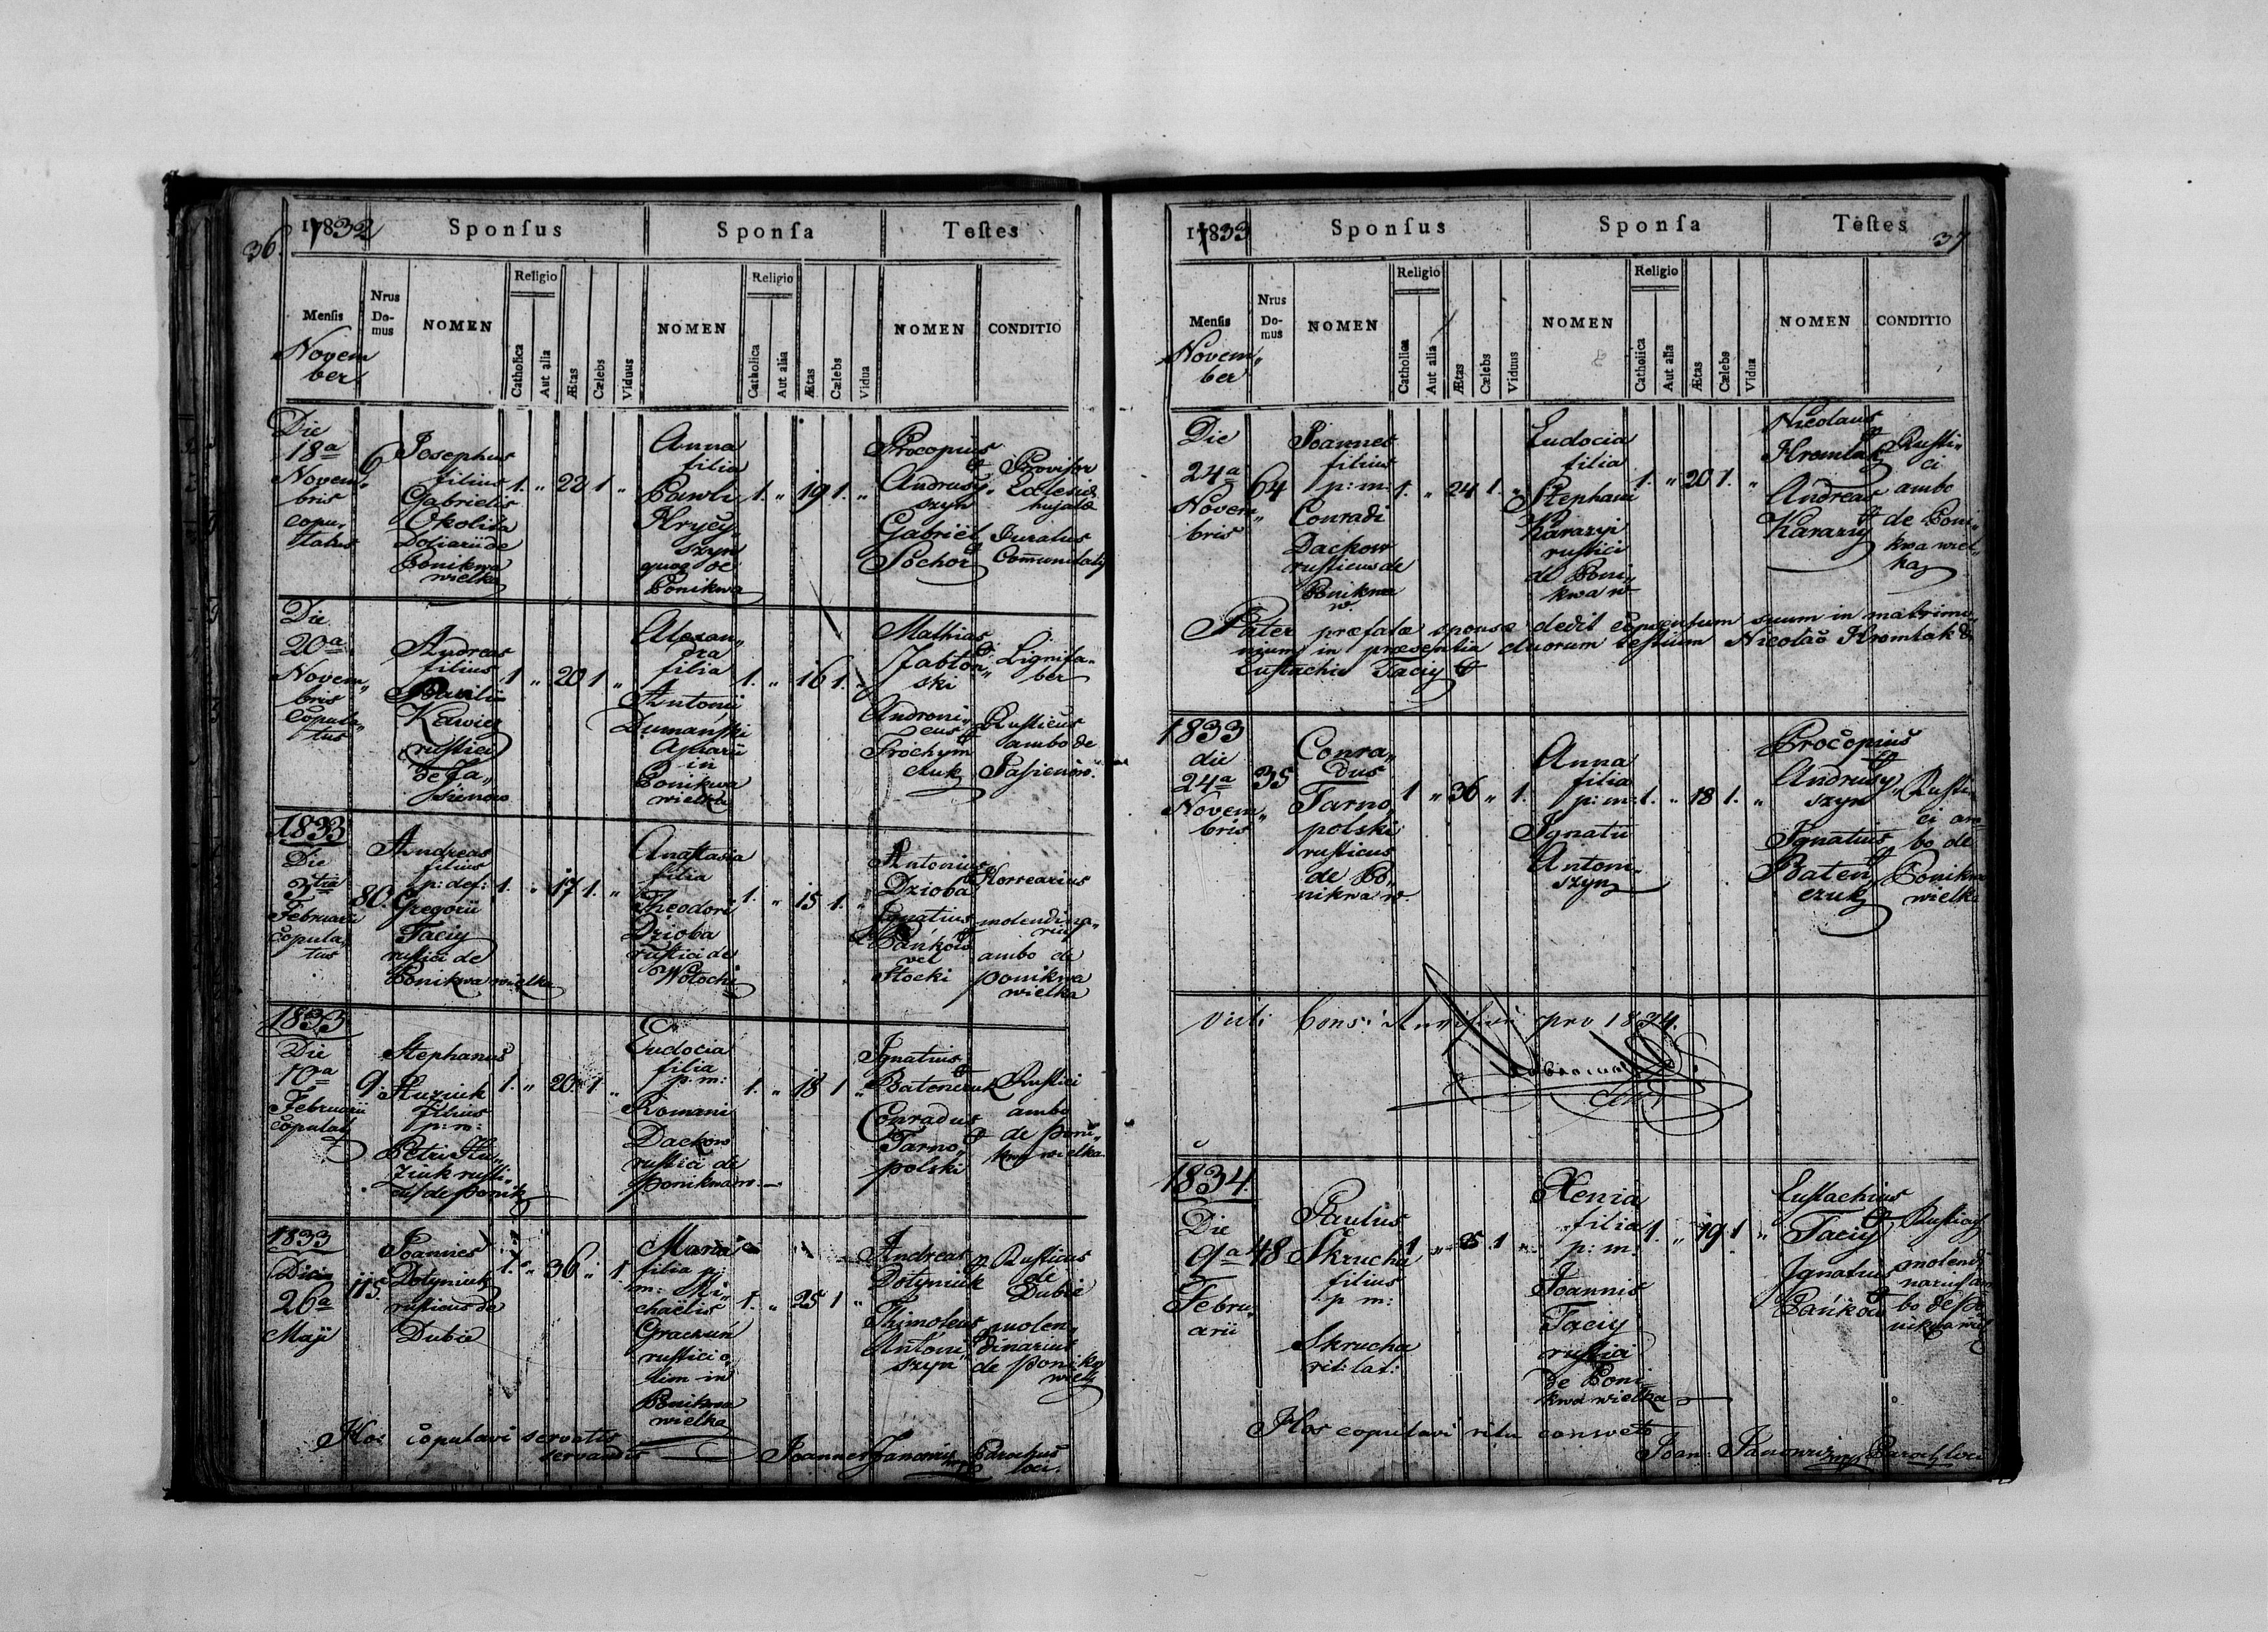 36.
1832
Sponsus
Sponsa
Testes
Mensis
Novem
ber
Nrus
Do-
mus
NOMEN
Religio
Catholica
Aut alia
Ætas
Cælebs
Viduus
NOMEN
Religio
Catholica
Aut alia
Ætas
Cælebs
Vidua
NOMEN
CONDITIO
Die
18a
Novem„
bris
copu„
latus
6
Josephus
filius
Gabrielis
Okolita
Doliarii de
Ponikwa
wielka
1. „ 22 1 „
Anna
filia
Pawli
Hrycy„
szyn
quoq de
Ponikwa
1. „ 19 1. „
Procopius
Andrusy„
szyn
Gabriel
Sochor
Provisor
Ecclesiæ
hujatæ
Juratus
Communitatis
Die
20a
Novem„
bris
Copula„
tus
Andreas
filius
Basilii
Kawicz
rustici
de Ja„
sienow
1 „ 20 1 „
Alexan„
dra
filia
Antonii
Dumanski
Apiarii
in
Ponikwa
wielka
1. „ 16 1. „
Mathias
Jabłon„
ski
Androni„
cus
Trochym
czuk
Lignifa„
ber
Rusticus
ambo de
Jasienow.
1833
Die
3tia
Februarii
Copula„
tus
80.
Andreas
filius
p: def:
Gregorii
Taciy
rustici de
Ponikwa wielka
1. „ 17 1. „
Anastasia
filia
Theodori
Dzioba
rustici de
Wołochi
1. „ 15 1. „
Antonius
Dzioba
Ignatius
Pańkow
vel
Stocki
molendina„
rius
ambo de
ponikwa
wielka
1833
Die
10a
Februarii
copulat
9.
Stephanus
Huziuk
filius
p: m:
Petri Hu„
ziuk rusti„
ci de Ponik
1. „ 20. 1 „
Eudocia
filia
p. m:
Romani
Dackow
rustici de
Ponikwa w.
1. „ 18 1 „
Ignatius
Batenczuk
Conradus
Tarno„
polski
Rustici
ambo
de poni„
kwa wielka
1833
Die
26a
Maji
115.
Joannes
Dołyniuk
rusticus de
Dubie
1. „ 36 „ 1
Maria
filia p:
m: Mi„
chaëlis
Graczun
rustici o„
lim in
Ponikwa
wielka
1. „ 25 1 „
Andreas
Dołyniuk
Thimoteus
Antoni
szyn
Rusticus
de
Dubie
molen„
dinarius
de Ponikw
wielk
Hos copulavi servatis
servandis
Joannes Janowicz Parochus
loci.
37
1833
Sponsus
Sponsa
Testes
Mensis
Novem„
ber
Nrus
Do-
mus
NOMEN
Religio
Catholica
Aut alia
Ætas
Cælebs
Viduus
NOMEN
Religio
Catholica
Aut alia
Ætas
Cælebs
Vidua
NOMEN
CONDITIO
Die
24a
Novem„
bris
64
Joannes
filius
p: m:
Conradi
Dackow
rusticus de
Ponikwa
w.
1. „ 24 1. „
Eudocia
filia
Stephani
Karazyi
rustici
de Poni„
kwa w
1. „ 20 1. „
Nicolaus
Hromlak
Andreas
Karazyi
Rusti„
ci
ambo
de Poni„
kwa wiel„
ka
Pater præfatæ sponsæ dedit consensum suum in matrimo„
nium in præsentia duorum testium Nicolao Hromlak &
Eustachio Taciy
1833
die
24a
Novem„
bris
35
Conra„
dus
Tarno„
polski
rusticus
de Po„
nikwa w.
1 „ 36 „ 1.
Anna
filia
p: m:
Ignatii
Antoni„
szyn
1. „ 18 1. „
Procopius
Andrusy„
szyn
Ignatius
Baten
czuk
Rusti„
ci am
bo de
Ponikwa
wielka
Vidi
pro 1834.
1834.
Die
9a
Febru„
arii
48
Paulus
Skrucha
filius
p m:
Skrucha
rit: lat:
1 „ 25 1 „
Xenia
filia
p: m:
Joannis
Taciy
rustici
de Poni„
kwa wielka
1. „ 19 1 „
Eustachius
Taciy
Ignatius
Pańkow
molendi
narius am
bo de po
nikwa wiel
Hos copulavi ritu consveto
Joan: Janowicz Paroch loci